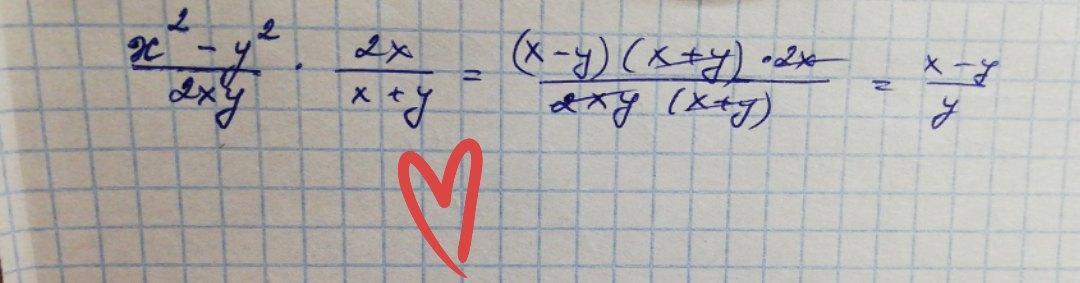 (x² - y²)/(2xy) · 2x/(x + y) = ((x - y)(x + y) · 2x)/(2xy (x + y)) = (x - y)/y